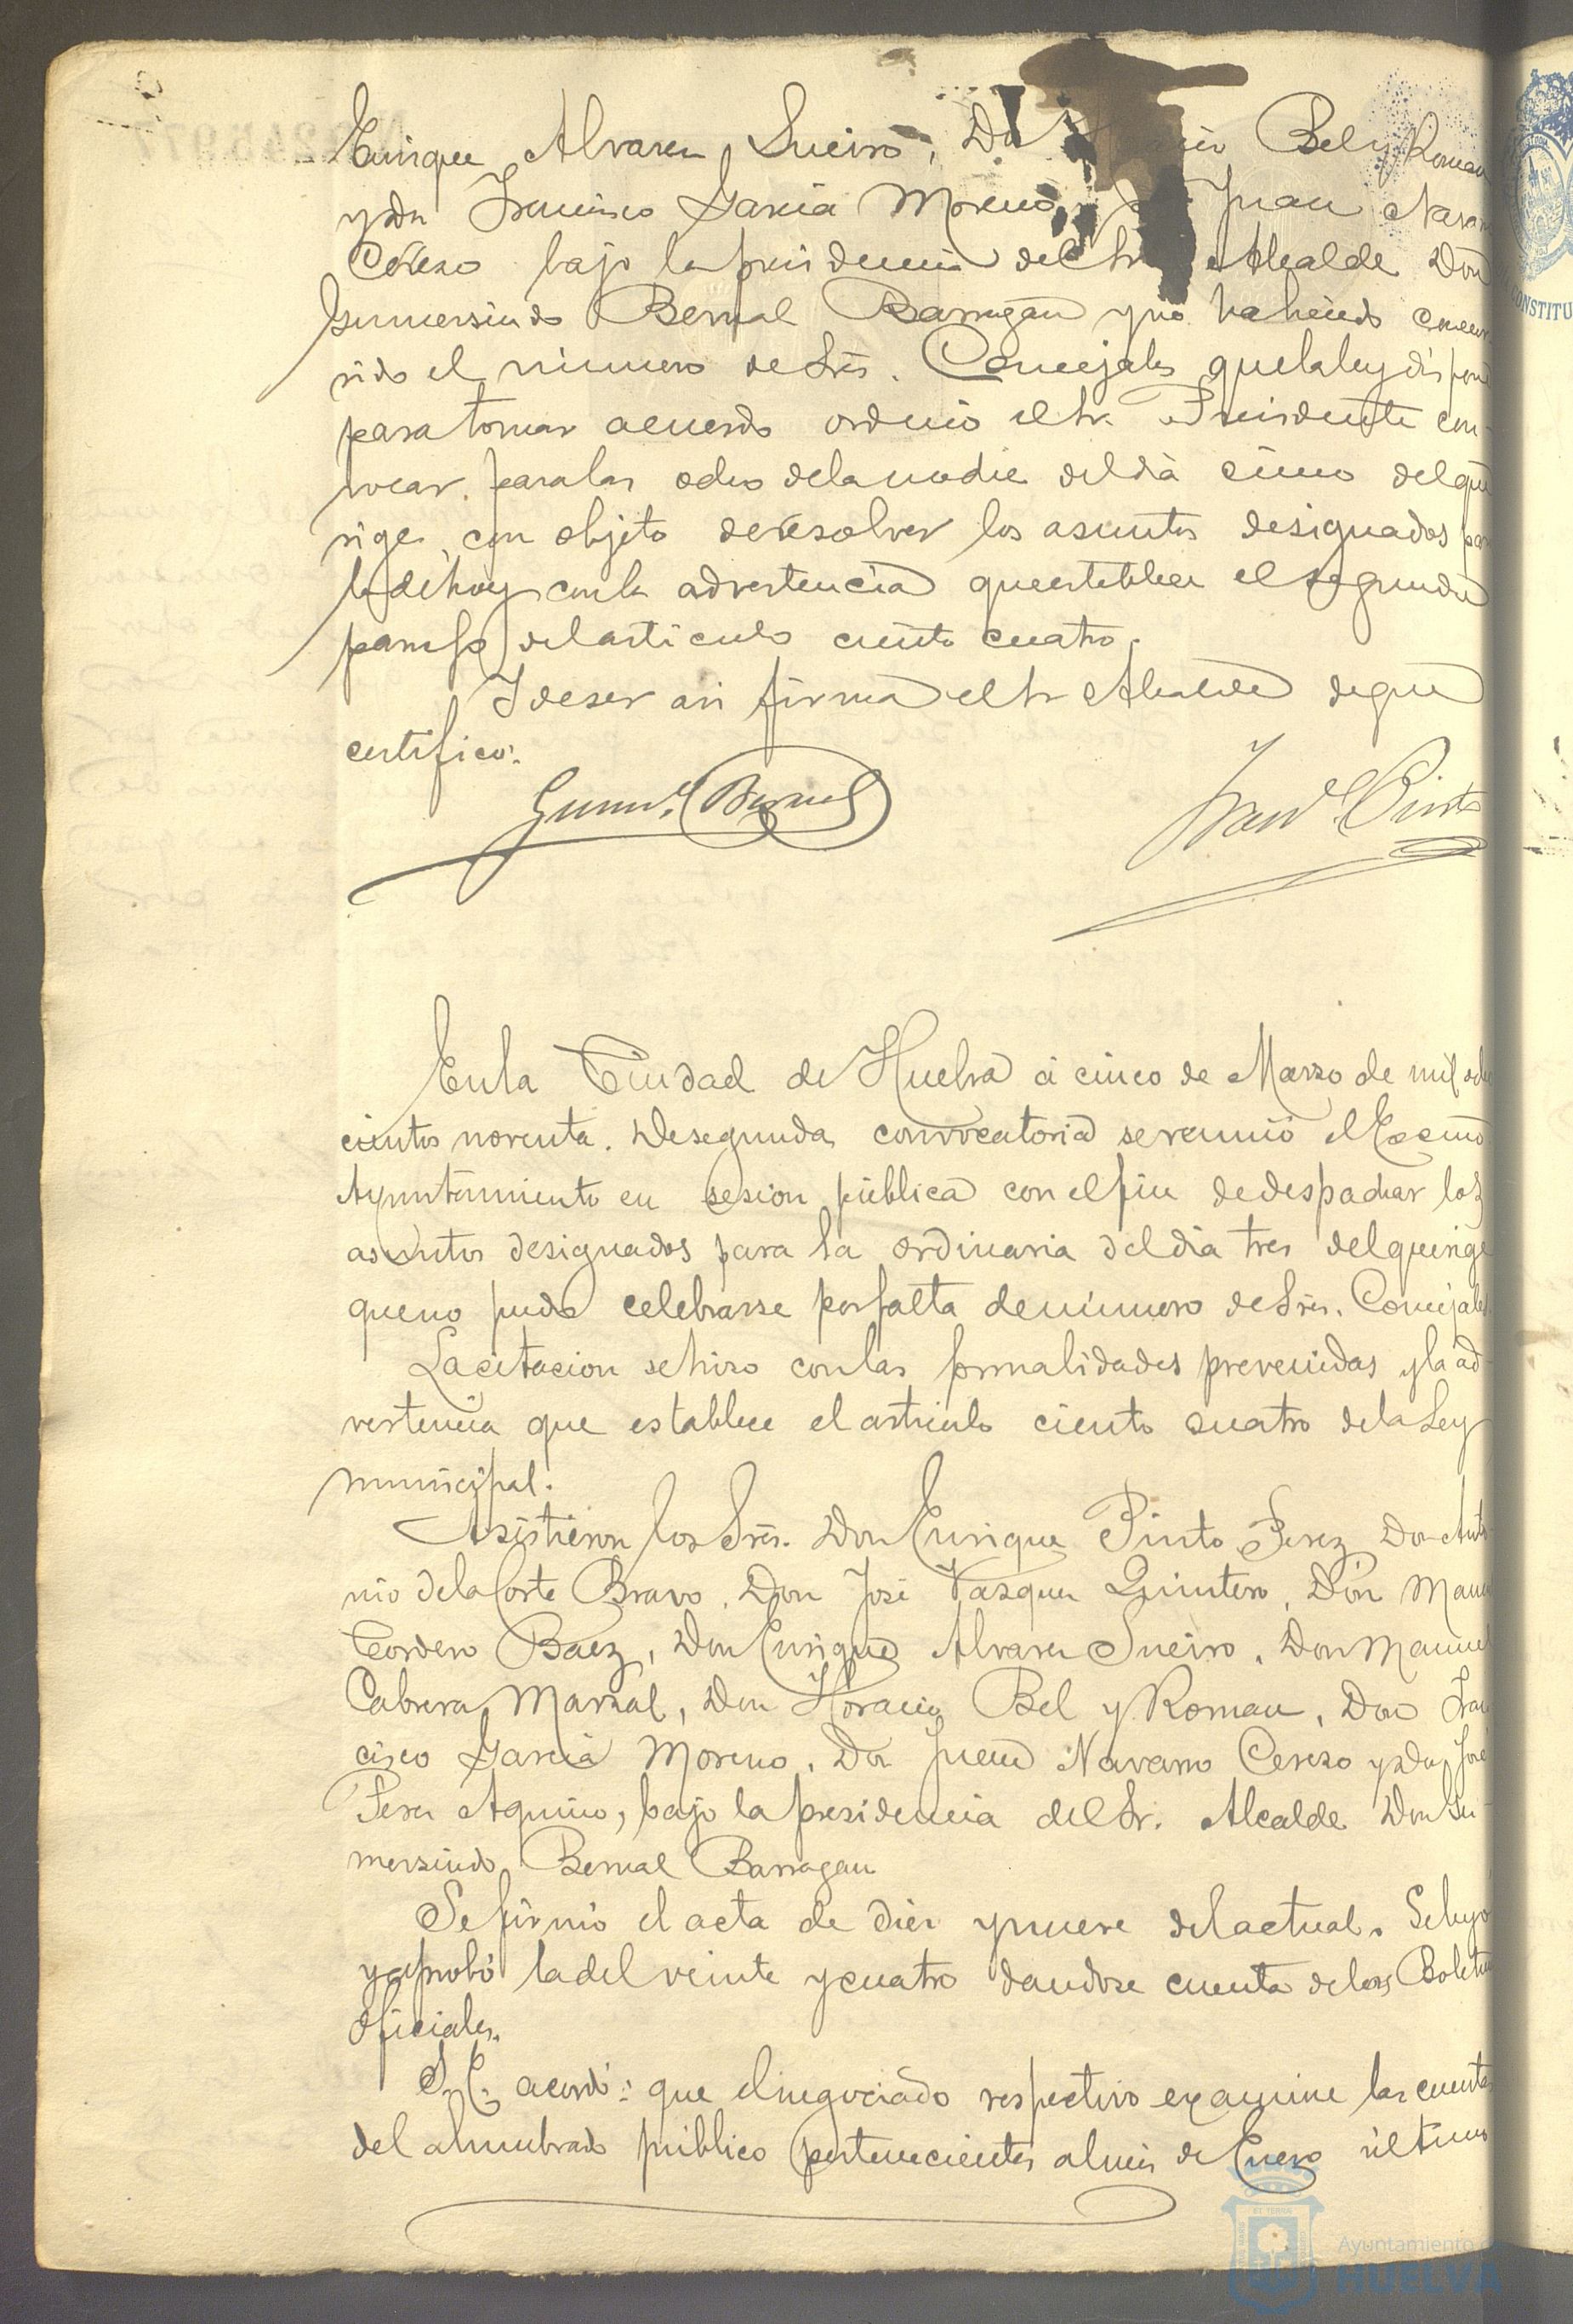 Enrique Alvarez Sueiro, Don Bel y Roman
y Don Francisco Garcia Moreno, y Juan Navarro
Cerezo bajo la presidencia del Sr Alcalde Don
Gumersindo Bernal Barragan y no habiendo concur
rido el número de Sres. Concejales que la ley dispone
para tomar acuerdo ordenó el Sr. Presidente con-
vocar para las ocho de la noche del dia cinco del que
rige, con objeto de resolver los asuntos designados para
la de hoy con la advertencia que establece el segundo
parrafo del articulo ciento cuatro.
Y de ser asi firma el Sr Alcalde de que
certifico:
Gumdo. Bernal
Franco. Pinto
En la Ciudad de Huelva á cinco de Marzo de mil ocho
cientos noventa. De segunda convocatoria se reunió el Excmo
Ayuntamiento en sesion pública con el fin de despachar los
asuntos designados para la ordinaria del dia tres del que rige
que no pudo celebrarse por falta de número de Sres. Concejales.
La citacion se hizo con las formalidades prevenidas y la ad-
vertencia que establece el articulo ciento cuatro de la Ley
municipal.
Asistieron los Sres. Don Enrique Pinto Perez Don Anto
nio de la Corte Bravo, Don José Vazquez Quintero, Don Manuel
Cordero Baez, Don Enrique Alvarez Sueiro, Don Manuel
Cabrera Marzal, Don Horacio Bel y Roman, Don Fran
cisco Garcia Moreno, Don Juan Navarro Cerezo y Don José
Perez Aquino, bajo la presidencia del Sr. Alcalde Don Gu-
mersindo Bernal Barragan
Se firmó el acta de diez y nueve del actual. Se leyó
y aprobó la del veinte y cuatro dandose cuenta de los Boletines
oficiales.
S. E. acordó: que el negociado respectivo examine las cuentas
del alumbrado público pertenecientes al mes de Enero último
Ayuntamiento de
HUELVA